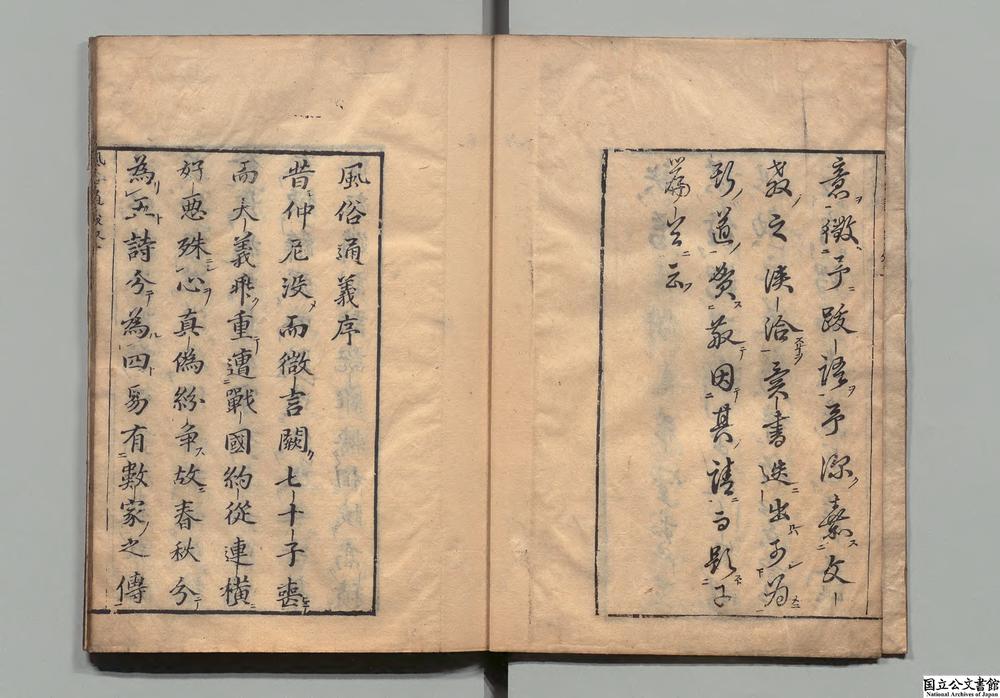 意徴予跋語予深嘉文
教之浹洽異書迭出可為
斯道賀敢因其請而題于
篇尖云
風俗通義序
昔仲尼没而微言闕七十子喪
而大義乖重遭戰國約從連横
好悪殊心真偽紛争故春秋分
為五詩分為四易有數家之傳
国立公文書館
National Archives of Japan